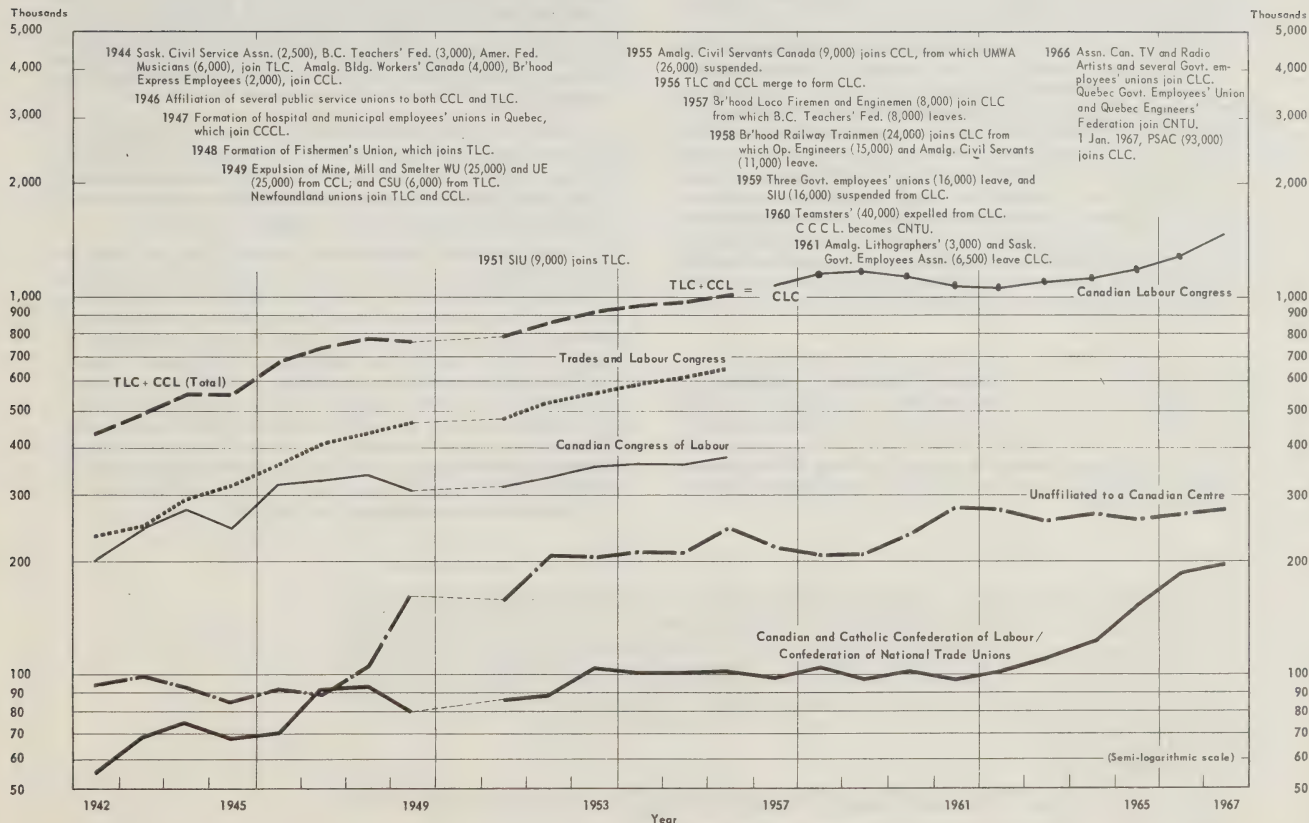 Thousands
Thousands
5,000
4,000
3,000
2,000
1,000
900
800
700
600
500
400
300
200
100
90
80
70
60
50
1944 Sask. Civil Service Assn. (2,500), B.C. Teachers' Fed. (3,000), Amer. Fed.
Musicians (6,000), join TLC. Amalg. Bldg. Workers' Canada (4,000), Br'hood
Express Employees (2,000), join CCL.
1946 Affiliation of several public service unions to both CCL and TLC.
1947 Formation of hospital and municipal employees' unions in Quebec,
which join CCCL.
1948 Formation of Fishermen's Union, which joins TLC.
1949 Expulsion of Mine, Mill and Smelter WU (25,000) and UE
(25,000) from CCL; and CSU (6,000) from TLC.
Newfoundland unions join TLC and CCL.
1951 SIU (9,000) joins TLC.
1955 Amalg. Civil Servants Canada (9,000) joins CCL, from which UMWA
(26,000) suspended.
1956 TLC and CCL merge to form CLC.
1957 Br'hood Loco Firemen and Enginemen (8,000) join CLC
from which B.C. Teachers' Fed. (8,000) leaves.
1958 Br'hood Railway Trainmen (24,000) joins CLC from
which Op. Engineers (15,000) and Amalg. Civil Servants
(11,000) leave.
1959 Three Govt. employees' unions (16,000) leave, and
SIU (16,000) suspended from CLC.
1960 Teamsters' (40,000) expelled from CLC.
C C C L. becomes CNTU.
1961 Amalg. Lithographers' (3,000) and Sask.
Govt. Employees Assn. (6,500) leave CLC.
1966 Assn. Can. TV and Radio
Artists and several Govt. em-
ployees' unions join CLC.
Quebec Govt. Employees' Union
and Quebec Engineers'
Federation join CNTU.
1 Jan. 1967, PSAC (93,000)
joins CLC.
TLC+CCL =
CLC
Canadian Labour Congress
Trades and Labour Congress
TLC + CCL (Total)
Canadian Congress of Labour
Unaffiliated to a Canadian Centre
Canadian and Catholic Confederation of Labour/
Confederation of National Trade Unions
(Semi-logarithmic scale)
5,000
4,000
3,000
2,000
1,000
900
800
700
600
500
400
300
200
100
90
80
70
60
50
1942
1945
1949
1953
1957
1961
1965
1967
Year